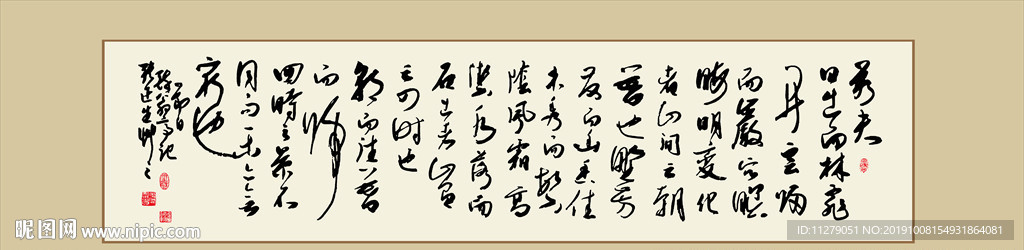 若夫
日出而林霏
开云归
而巖穴暝
晦明变化
者山间之朝
暮也野芳
发而幽香佳
木秀而繁
陰风霜高
潔水落而
石出者山间
之四时也
朝而往暮
而归
四时之景不
同而乐亦无
穷也
昵图网 www.nipic.com
ID:11279051 NO:20191008154931864081